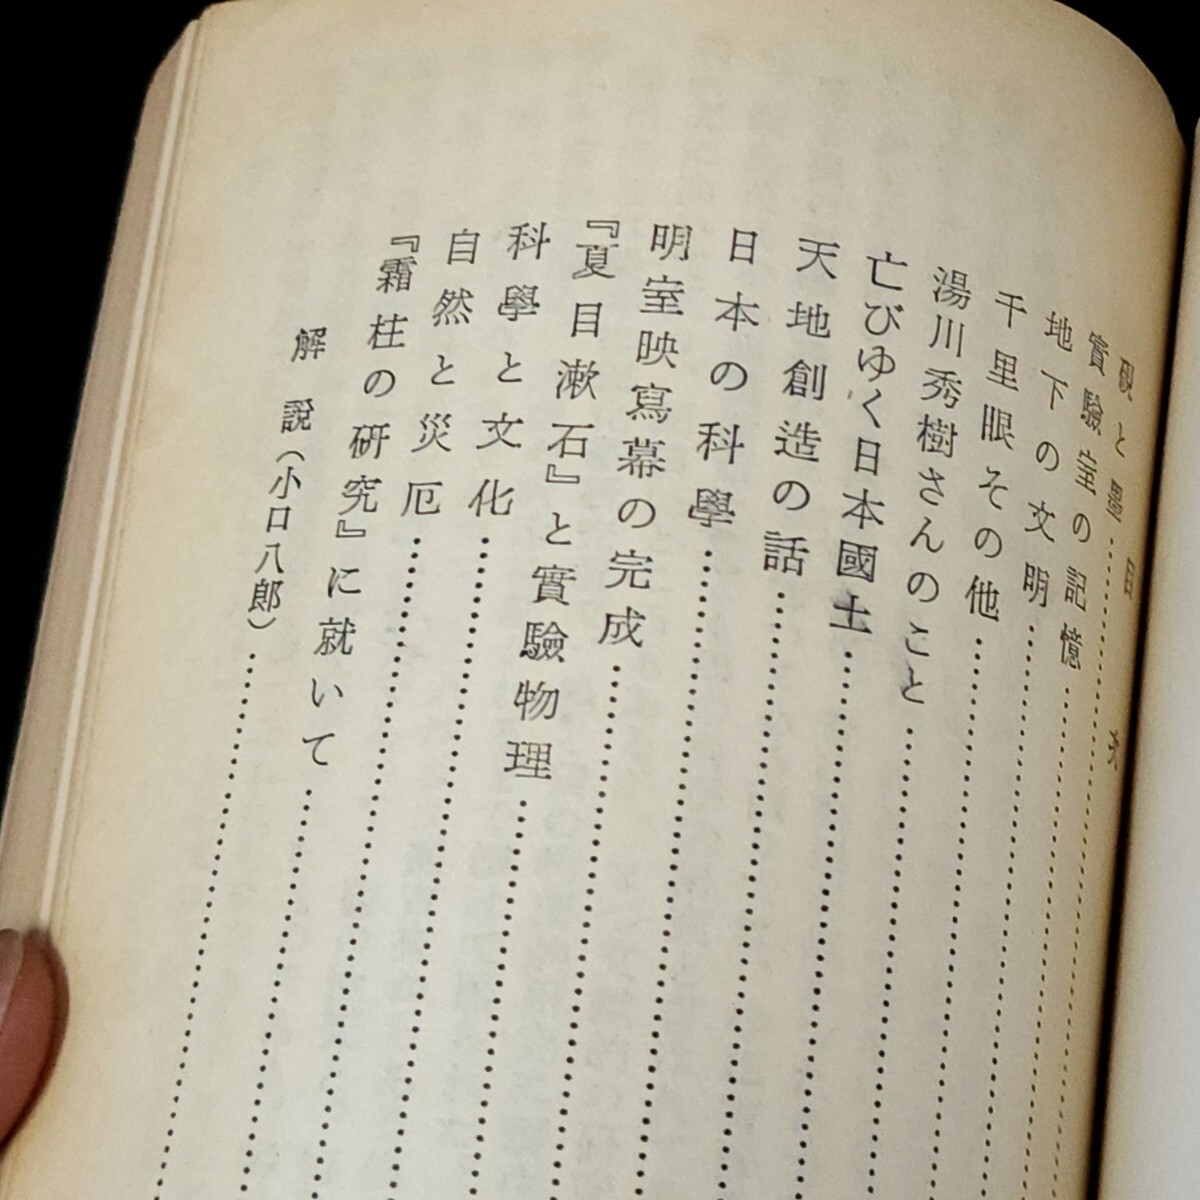 目次
硯と墨
實驗室の記憶
地下の文明
千里眼その他
湯川秀樹さんのこと
亡びゆく日本國土
天地創造の話
日本の科學
明室映寫幕の完成
『夏目漱石』と實驗物理
科學と文化
自然と災厄
『霜柱の研究』に就いて
解說(小口八郎)